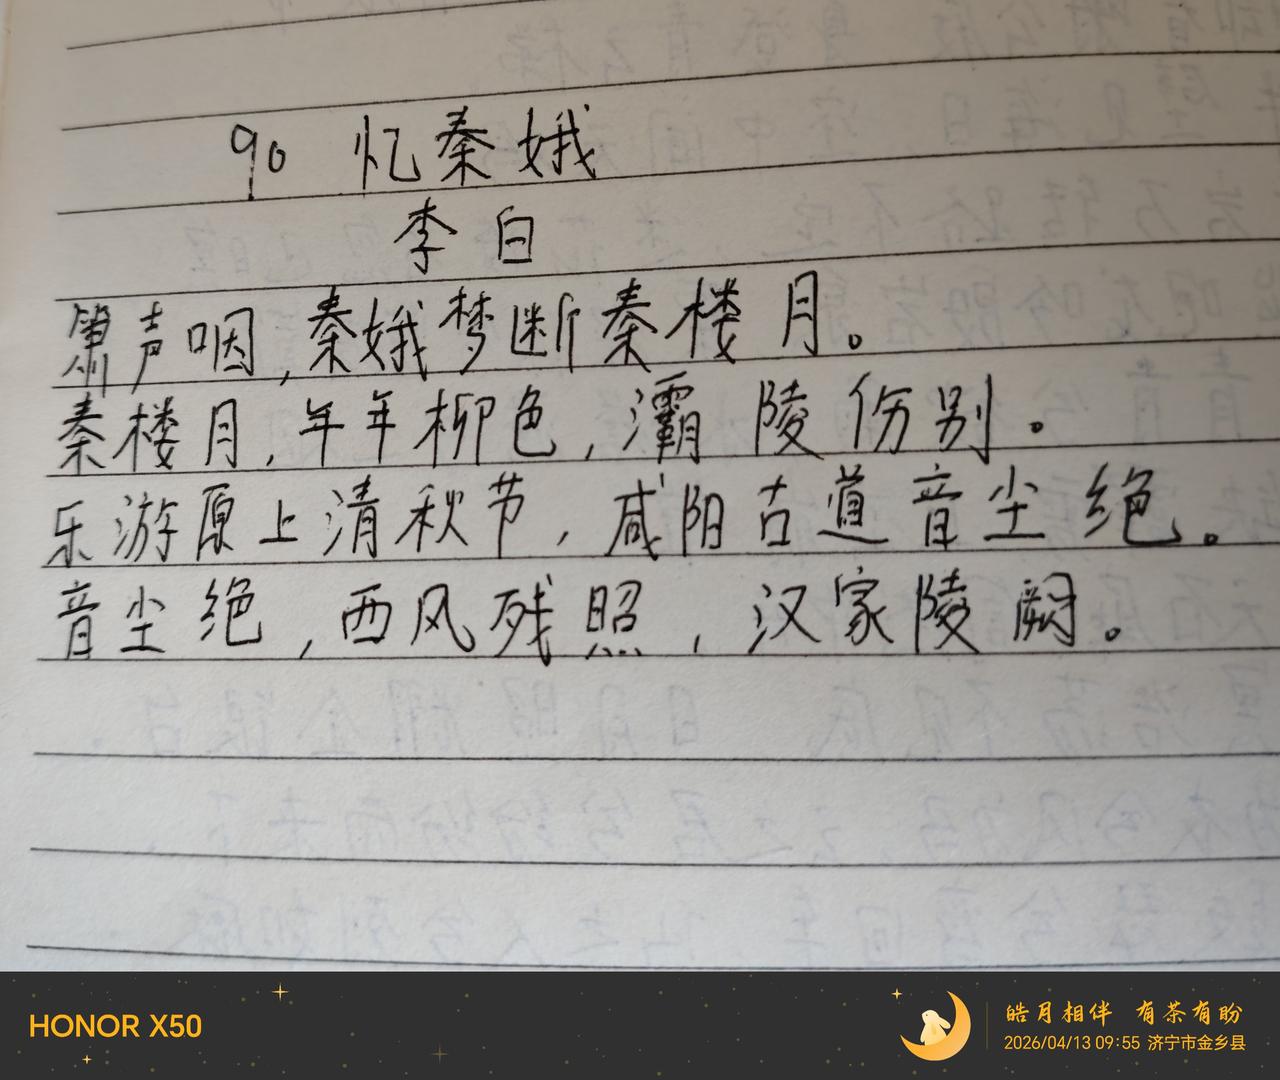 90 忆秦娥
李白
箫声咽,秦娥梦断秦楼月。
秦楼月,年年柳色,灞陵伤别。
乐游原上清秋节,咸阳古道音尘绝。
音尘绝,西风残照,汉家陵阙。
HONOR X50
皓月相伴 有茶有盼
2026/04/13 09:55 济宁市金乡县